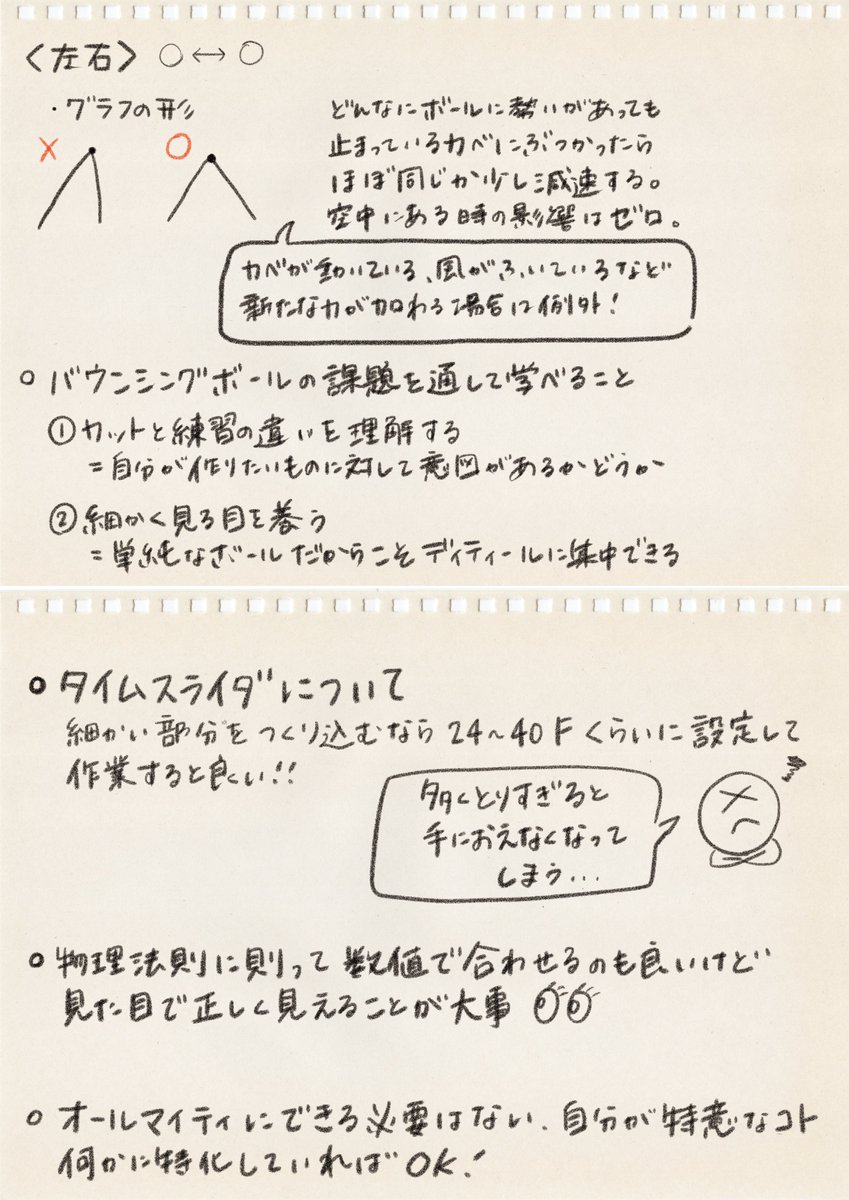 〈左右〉 ○↔○
・グラフの形
× ○
どんなにボールに勢いがあっても
止まっているカベにぶつかったら
ほぼ同じか少し減速する。
空中にある時の影響はゼロ。
カベが動いている、風がふいているなど
新たな力が加わる場合は例外!
○ バウンシングボールの課題を通して学べること
①カットと練習の違いを理解する
=自分が作りたいものに対して意図があるかどうか
②細かく見る目を養う
=単純なボールだからこそディティールに集中できる
○ タイムスライダについて
細かい部分をつくり込むなら24~40Fくらいに設定して
作業すると良い!!
多くとりすぎると
手におえなくなって
しまう...
○ 物理法則に則って数値で合わせるのも良いけど
見た目で正しく見えることが大事
○ オールマイティにできる必要はない、自分が特意なコト
何かに特化していればOK!